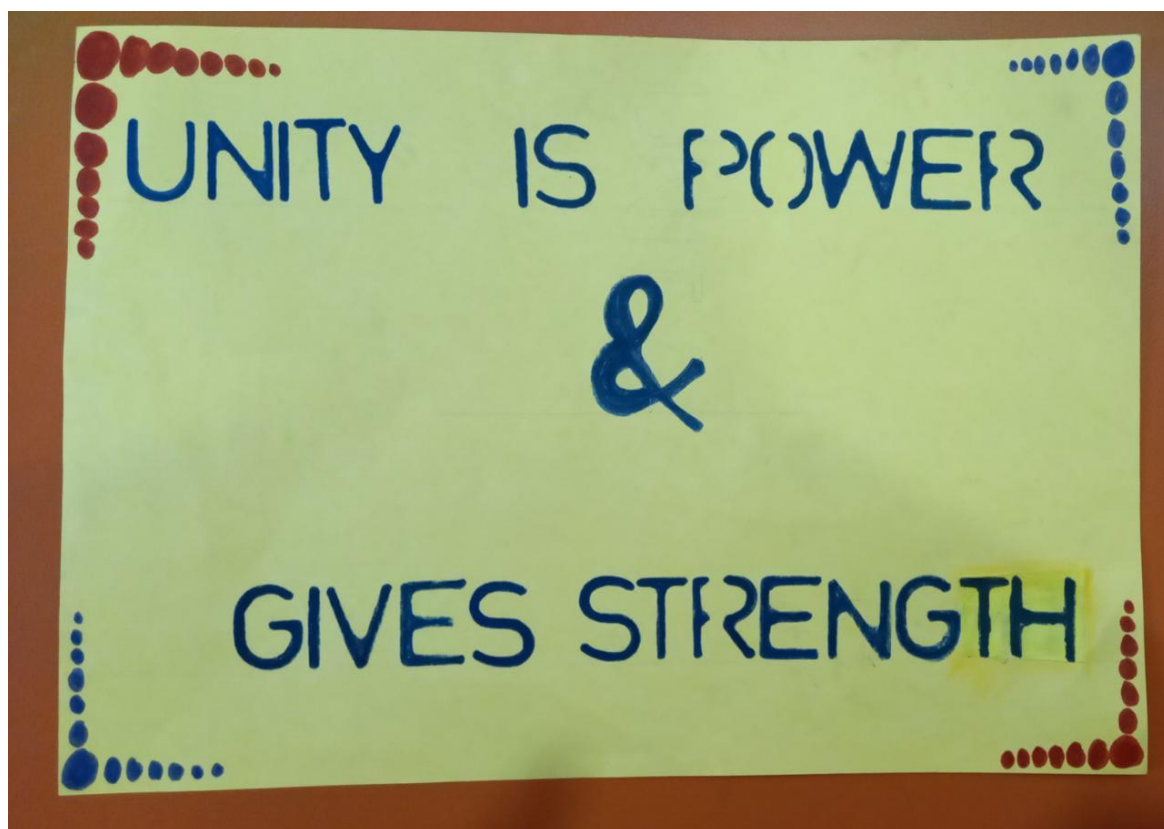 UNITY IS POWER
&
GIVES STRENGTH